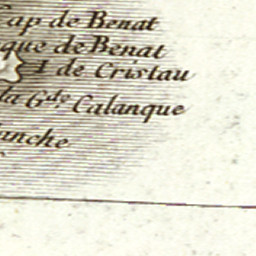 Cap de Benat
que de Benat
I de Cristau
la G.de Calanque
anche